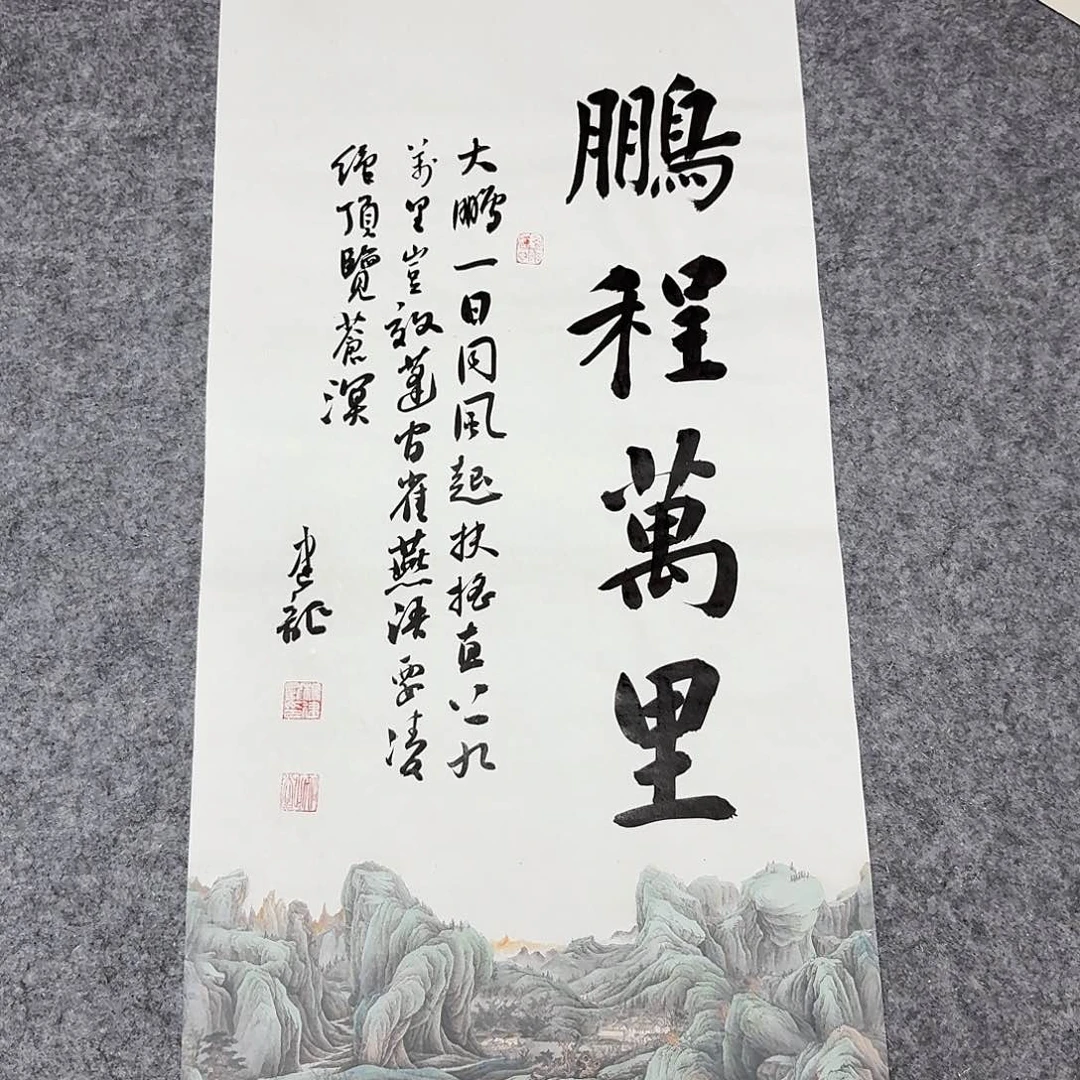 鵬程萬里
大鵬一日同風起扶搖直上九
萬里豈效蓬間雀燕語要凌
絕頂覽蒼溟
建龍